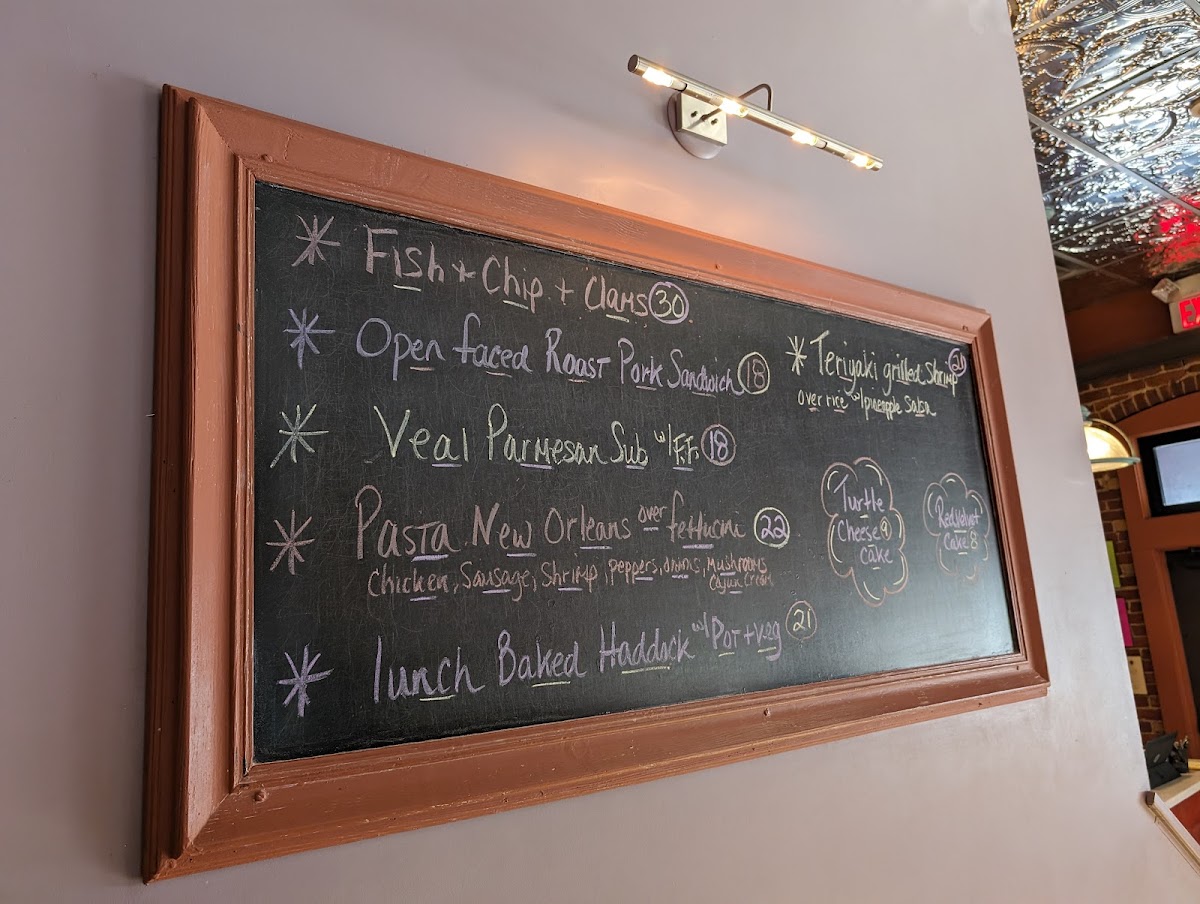 Fish + Chip + Clams 30
Open faced Roast Pork Sandwich 18
Veal Parmesan Sub w/ FF 18
Pasta New Orleans over fettucini 22
Chicken, Sausage, Shrimp, Peppers, onions, Mushrooms
Cajun Cream
lunch Baked Haddock w/ Pot + veg 21
Teriyaki grilled Shrimp
over rice w/ pineapple Salsa
Turtle
Cheese 9
cake
Red velvet
Cake 8
EX